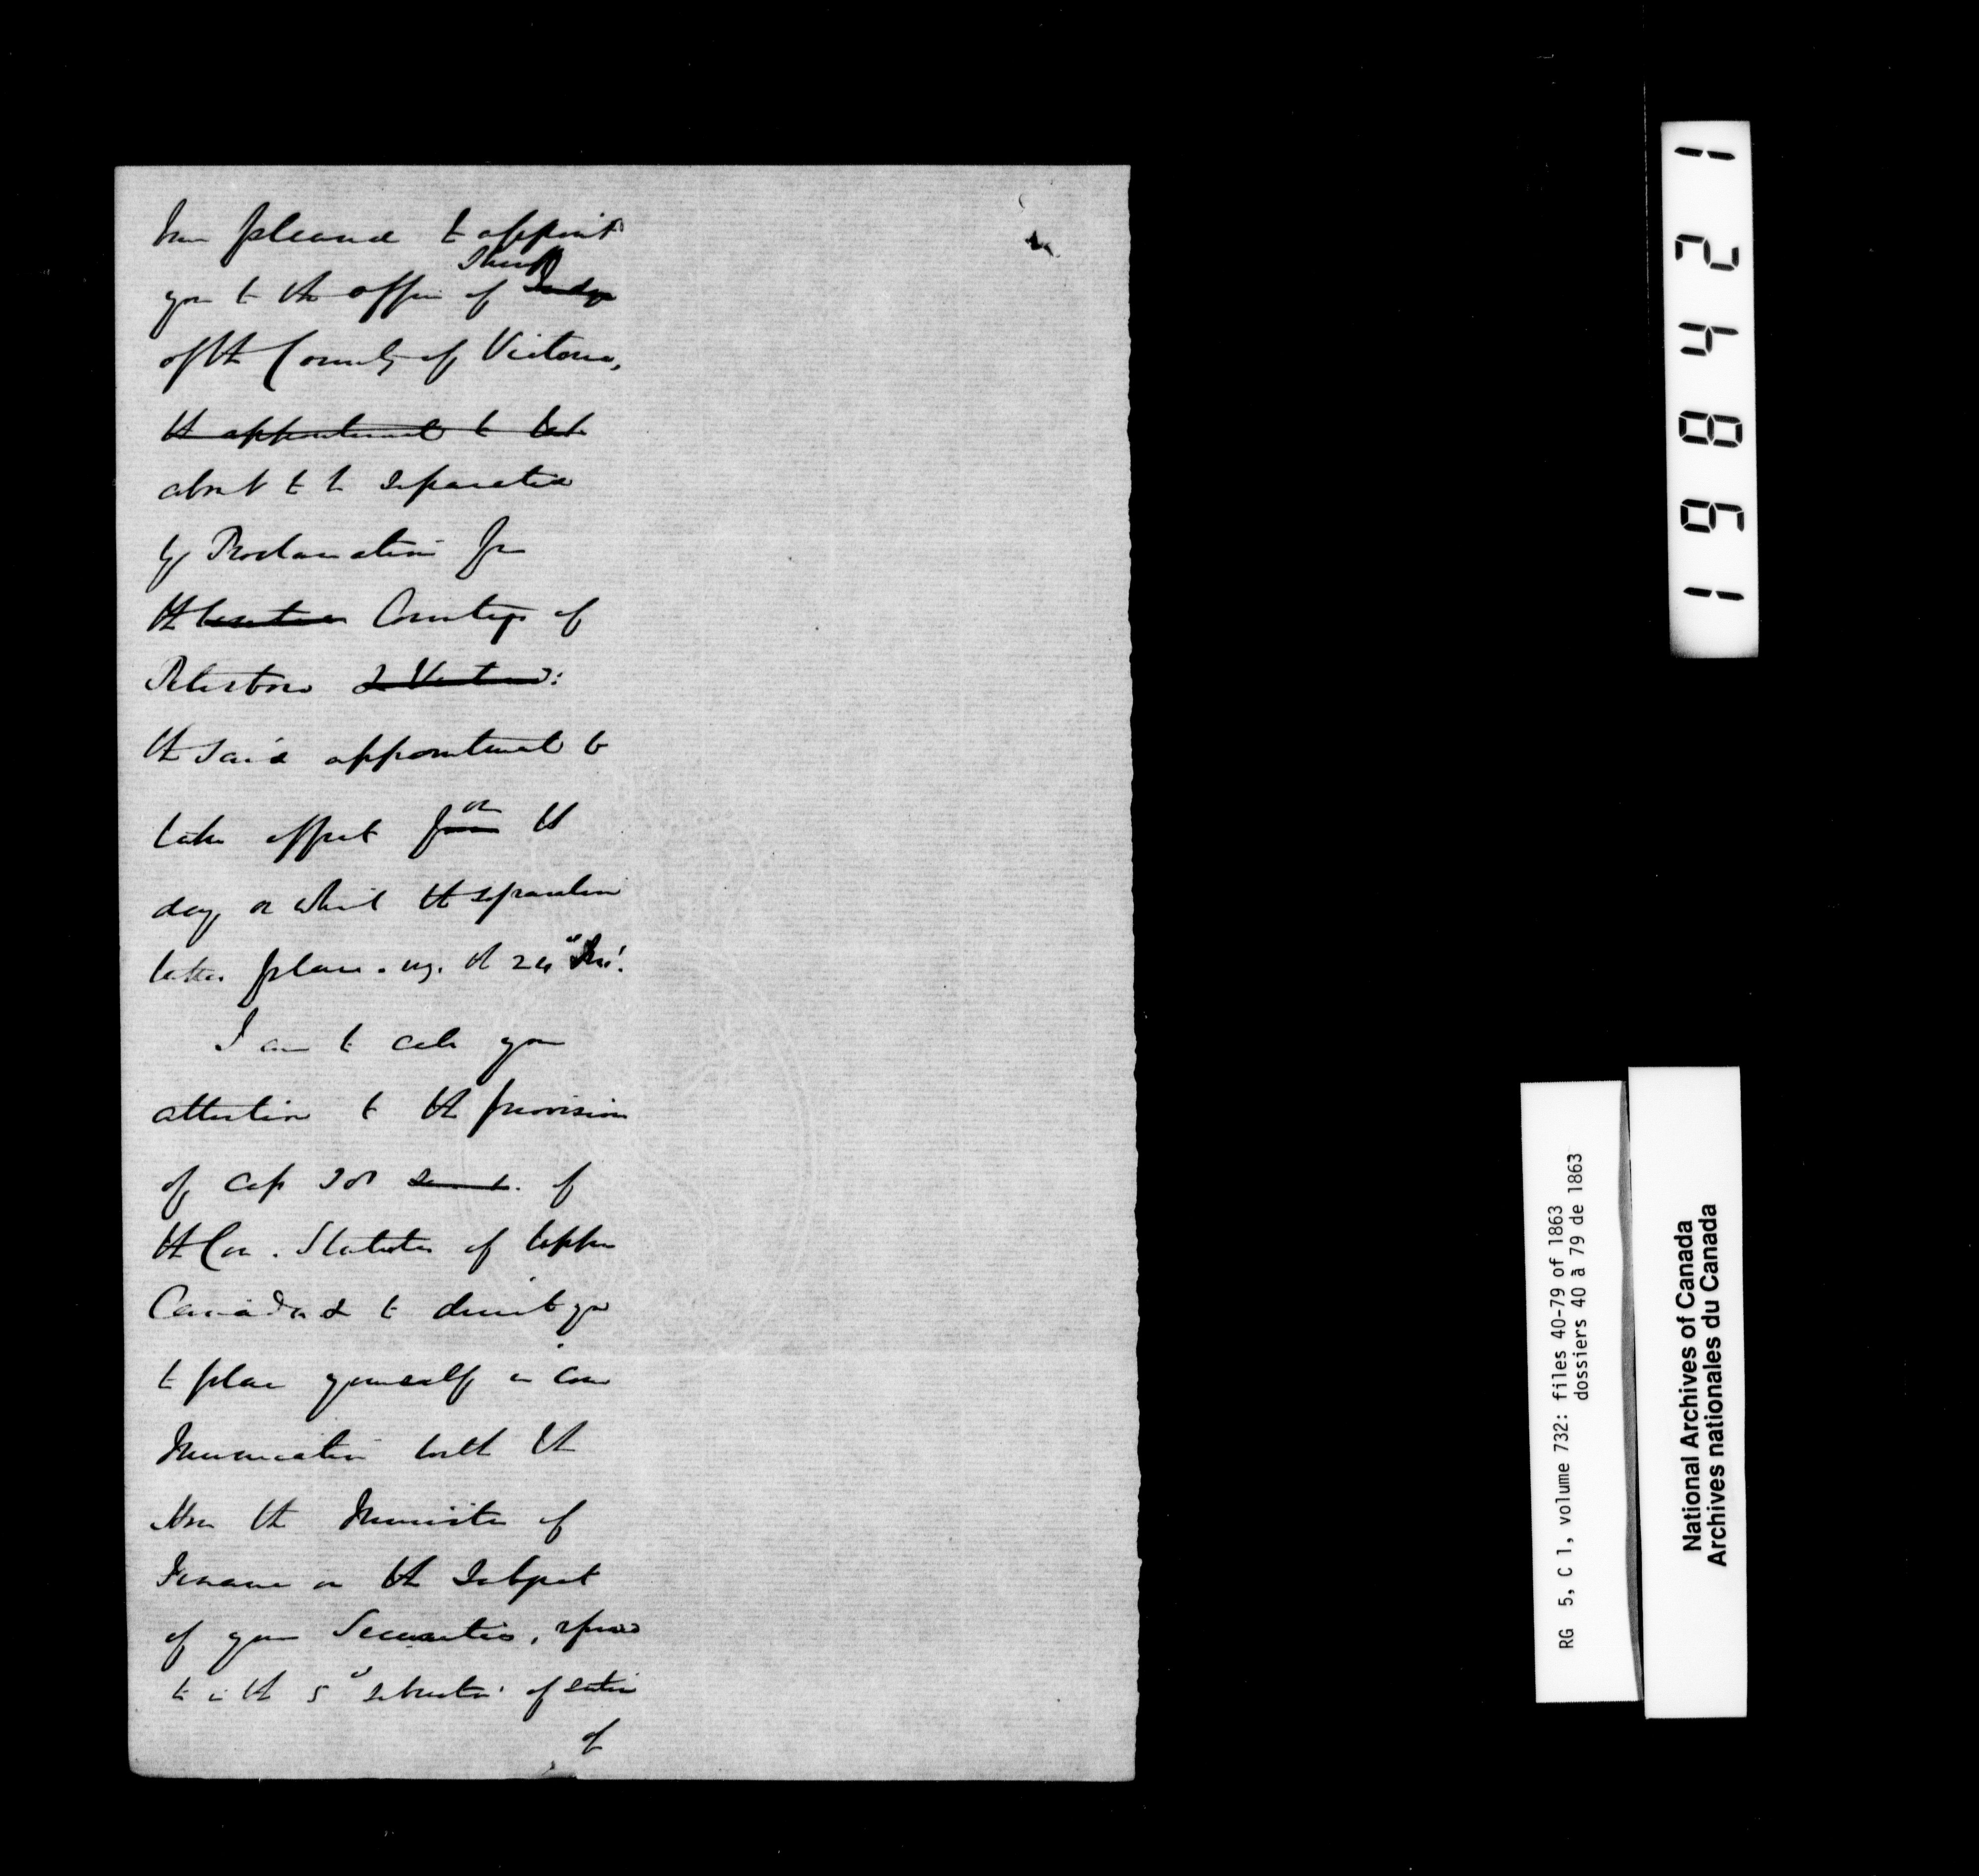 been pleased to appoint
Sheriff
you to the office of Judge
of the County of Victoria,
the appointment to take
about to be separated
by Proclamation from
the County of
Peterboro & Victoria:
the said appointment to
on
take effect from the
day on which the separation
takes place. viz. the 24" Inst.
I am to call your
attention to the provisions
of Cap 38 of
the Con. Statutes of Upper
Canada & to direct you
to place yourself in com
munication with the
Hon the Minister of
Finance on the subject
of your Securities, referred
to in the 5" subsection of section
of
1 2 4 8 9 1
RG 5, C 1, volume 732: files 40-79 of 1863
dossiers 40 à 79 de 1863
National Archives of Canada
Archives nationales du Canada